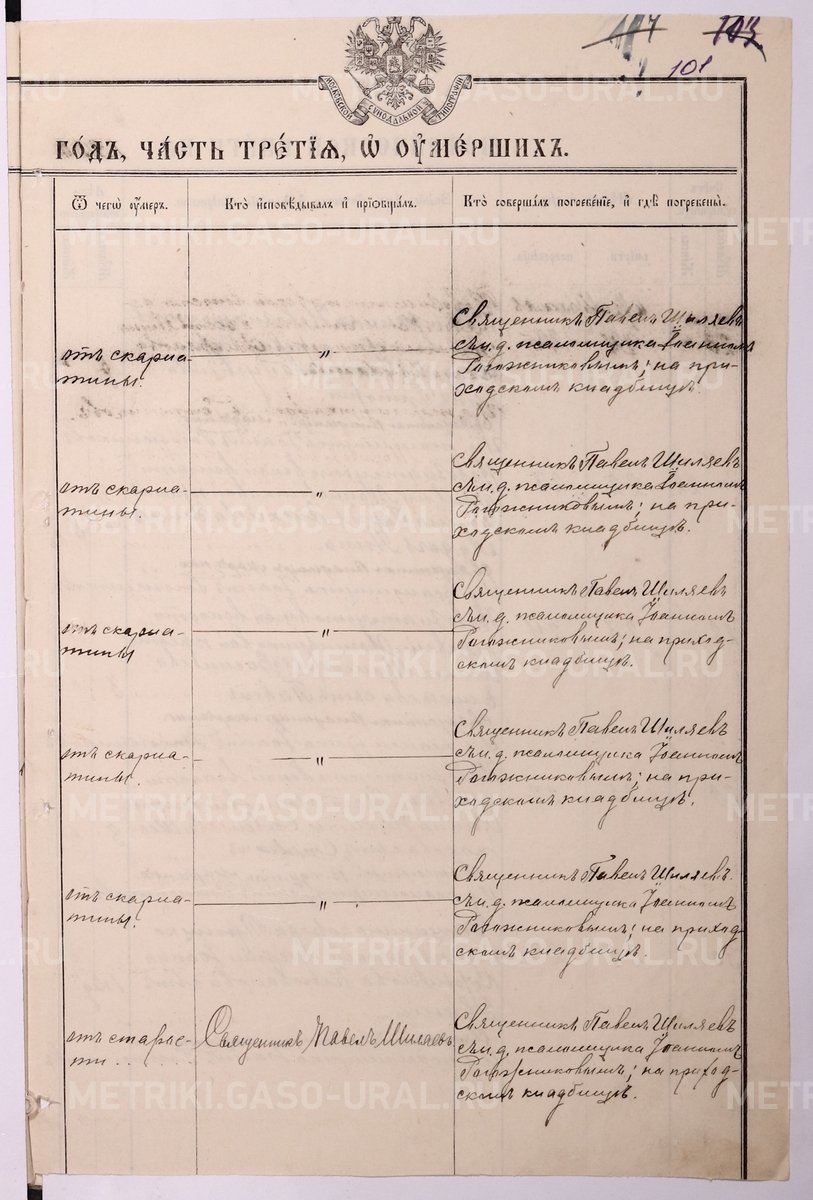 117 103
101
МОСКОВСКОЙ СѴНОДАЛЬНОЙ ТИПОГРАФІИ
ГО́ДЪ, ЧА́СТЬ ТРЕ́ТІЯ, Ѡ҆ ОУ҆МЕ́РШИХЪ.
Ѿ чегѡ̀ оу҆́меръ.
Кто̀ и҆сповѣ́дывалъ и҆ прїѡбща́лъ.
Кто̀ соверша́лъ погребе́нїе, и҆ гдѣ̀ погребены̀.
отъ скарла-
тины.
"
Священникъ Павелъ Шиляевъ
съ и. д. псаломщика Іоанномъ
Рогожниковымъ; на при-
ходскомъ кладбищѣ.
отъ скарла-
тины.
"
Священникъ Павелъ Шиляевъ
съ и. д. псаломщика Іоанномъ
Рогожниковымъ; на при-
ходскомъ кладбищѣ.
отъ скарла-
тины
"
Священникъ Павелъ Шиляевъ
съ и. д. псаломщика Іоанномъ
Рогожниковымъ; на приход-
скомъ кладбищѣ.
отъ скарла-
тины.
"
Священникъ Павелъ Шиляевъ
съ и. д. псаломщика Іоанномъ
Рогожниковымъ; на при-
ходскомъ кладбищѣ.
отъ скарла-
тины.
"
Священникъ Павелъ Шиляевъ.
съ и. д. псаломщика Іоанномъ
Рогожниковымъ; на приход-
скомъ кладбищѣ.
отъ старос-
ти
Священникъ Павелъ Шиляевъ
Священникъ Павелъ Шиляевъ
съ и. д. псаломщика Іоанномъ
Рогожниковымъ; на приход-
скомъ кладбищѣ.
METRIKI.GASO-URAL.RU